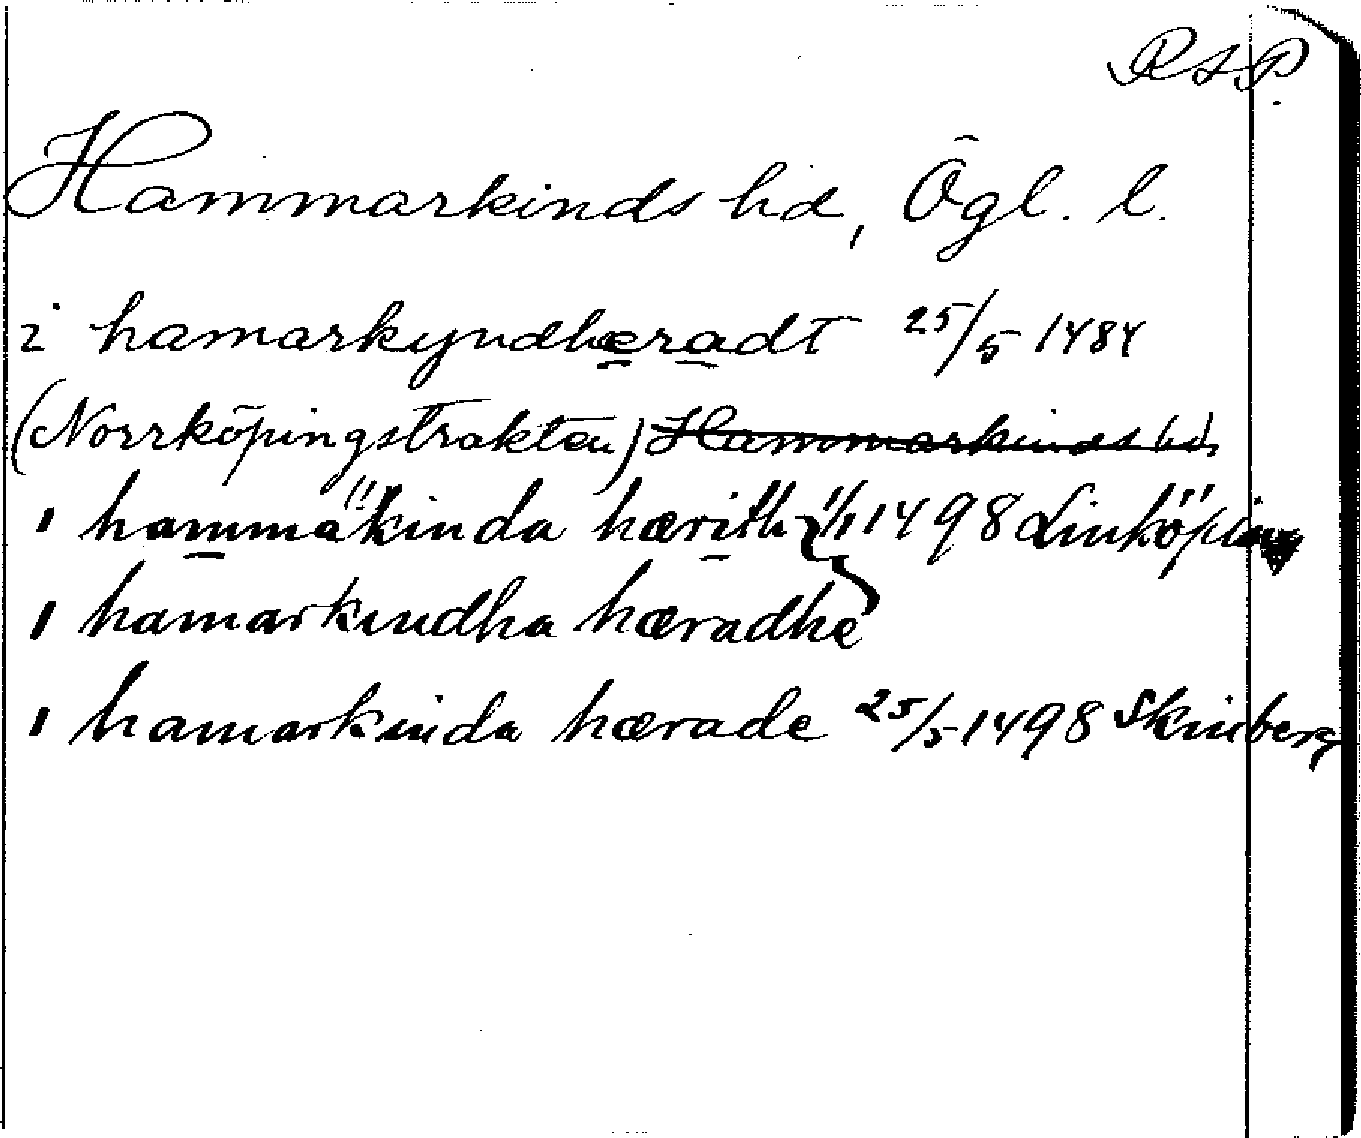 RAP.
Hammarkinds hd, Ögl. l.
i hamarkyndheradt 25/5 1484
(Norrköpingstrakten) Hammarkinds hd,
i hammäkinda hærith 1/1 1498 Linköping
i hamarkindha hæradhe
i hamarkinda hærade 25/5 1498 Skinberg